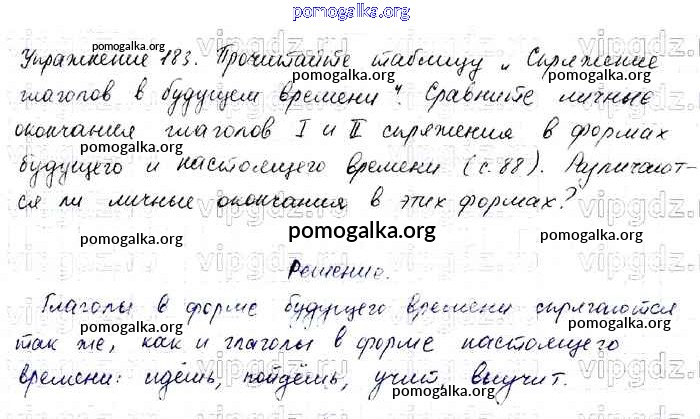 pomogalka.org
Упражнение 183. Прочитайте таблицу „Спряжение
pomogalka.org
pomogalka.org
глаголов в будущем времени“. Сравните личные
pomogalka.org
pomogalka.org
окончания глаголов I и II спряжения в формах
pomogalka.org
будущего и настоящего времени (с. 88). Различают-
ся ли личные окончания в этих формах?
pomogalka.org
pomogalka.org
pomogalka.org
Решение.
pomogalka.org
Глаголы в форме будущего времени спрягаются
pomogalka.org
pomogalka.org
так же, как и глаголы в форме настоящего
времени: идёшь, пойдёшь, учит, выучит.
pomogalka.org